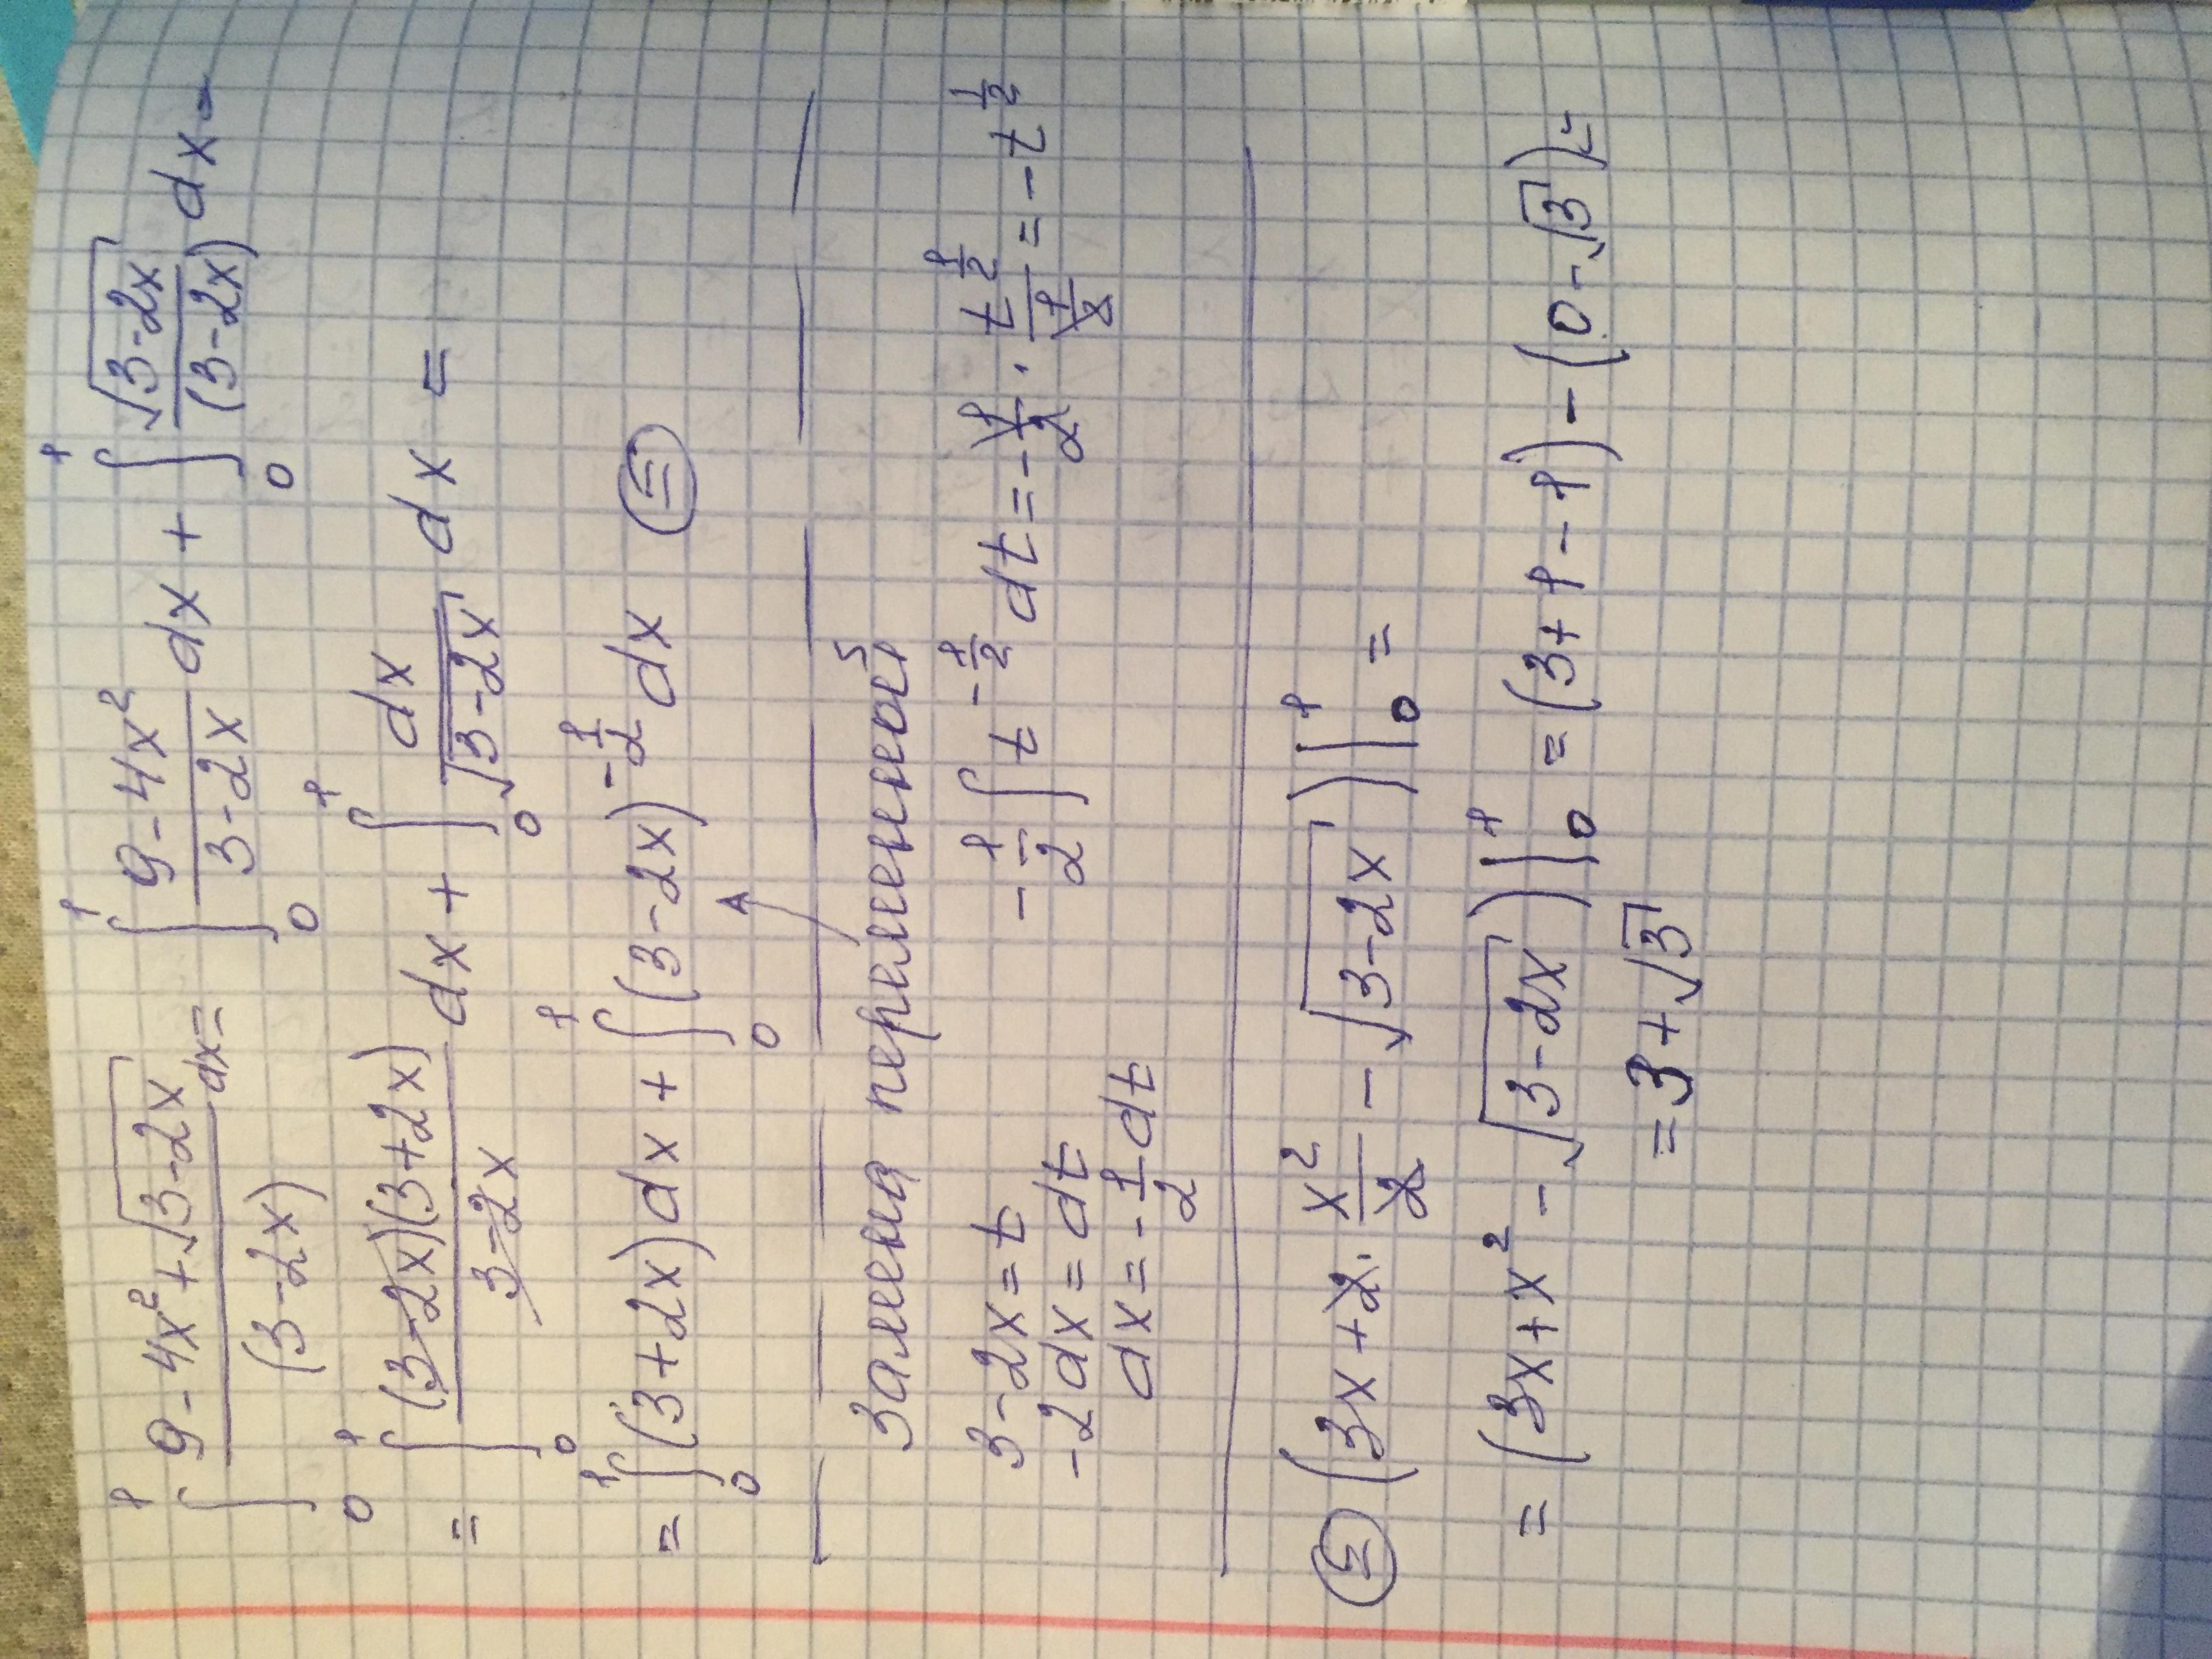 ∫₀¹ (9-4x²+√(3-2x))/(3-2x) dx = ∫₀¹ (9-4x²)/(3-2x) dx + ∫₀¹ √(3-2x)/(3-2x) dx =
= ∫₀¹ (3-2x)(3+2x)/(3-2x) dx + ∫₀¹ dx/√(3-2x) dx =
= ∫₀¹ (3+2x)dx + ∫₀¹ (3-2x)^(-1/2) dx ⊜
Замена переменной
3-2x=t
-1/2 ∫ t^(-1/2) dt = -1/2 · t^(1/2)/(1/2) = -t^(1/2)
-2dx=dt
dx=-1/2 dt
⊜ (3x+2·x²/2 - √(3-2x))|₀¹ =
= (3x+x² - √(3-2x))|₀¹ = (3+1-1)-(0-√3)=
= 3+√3